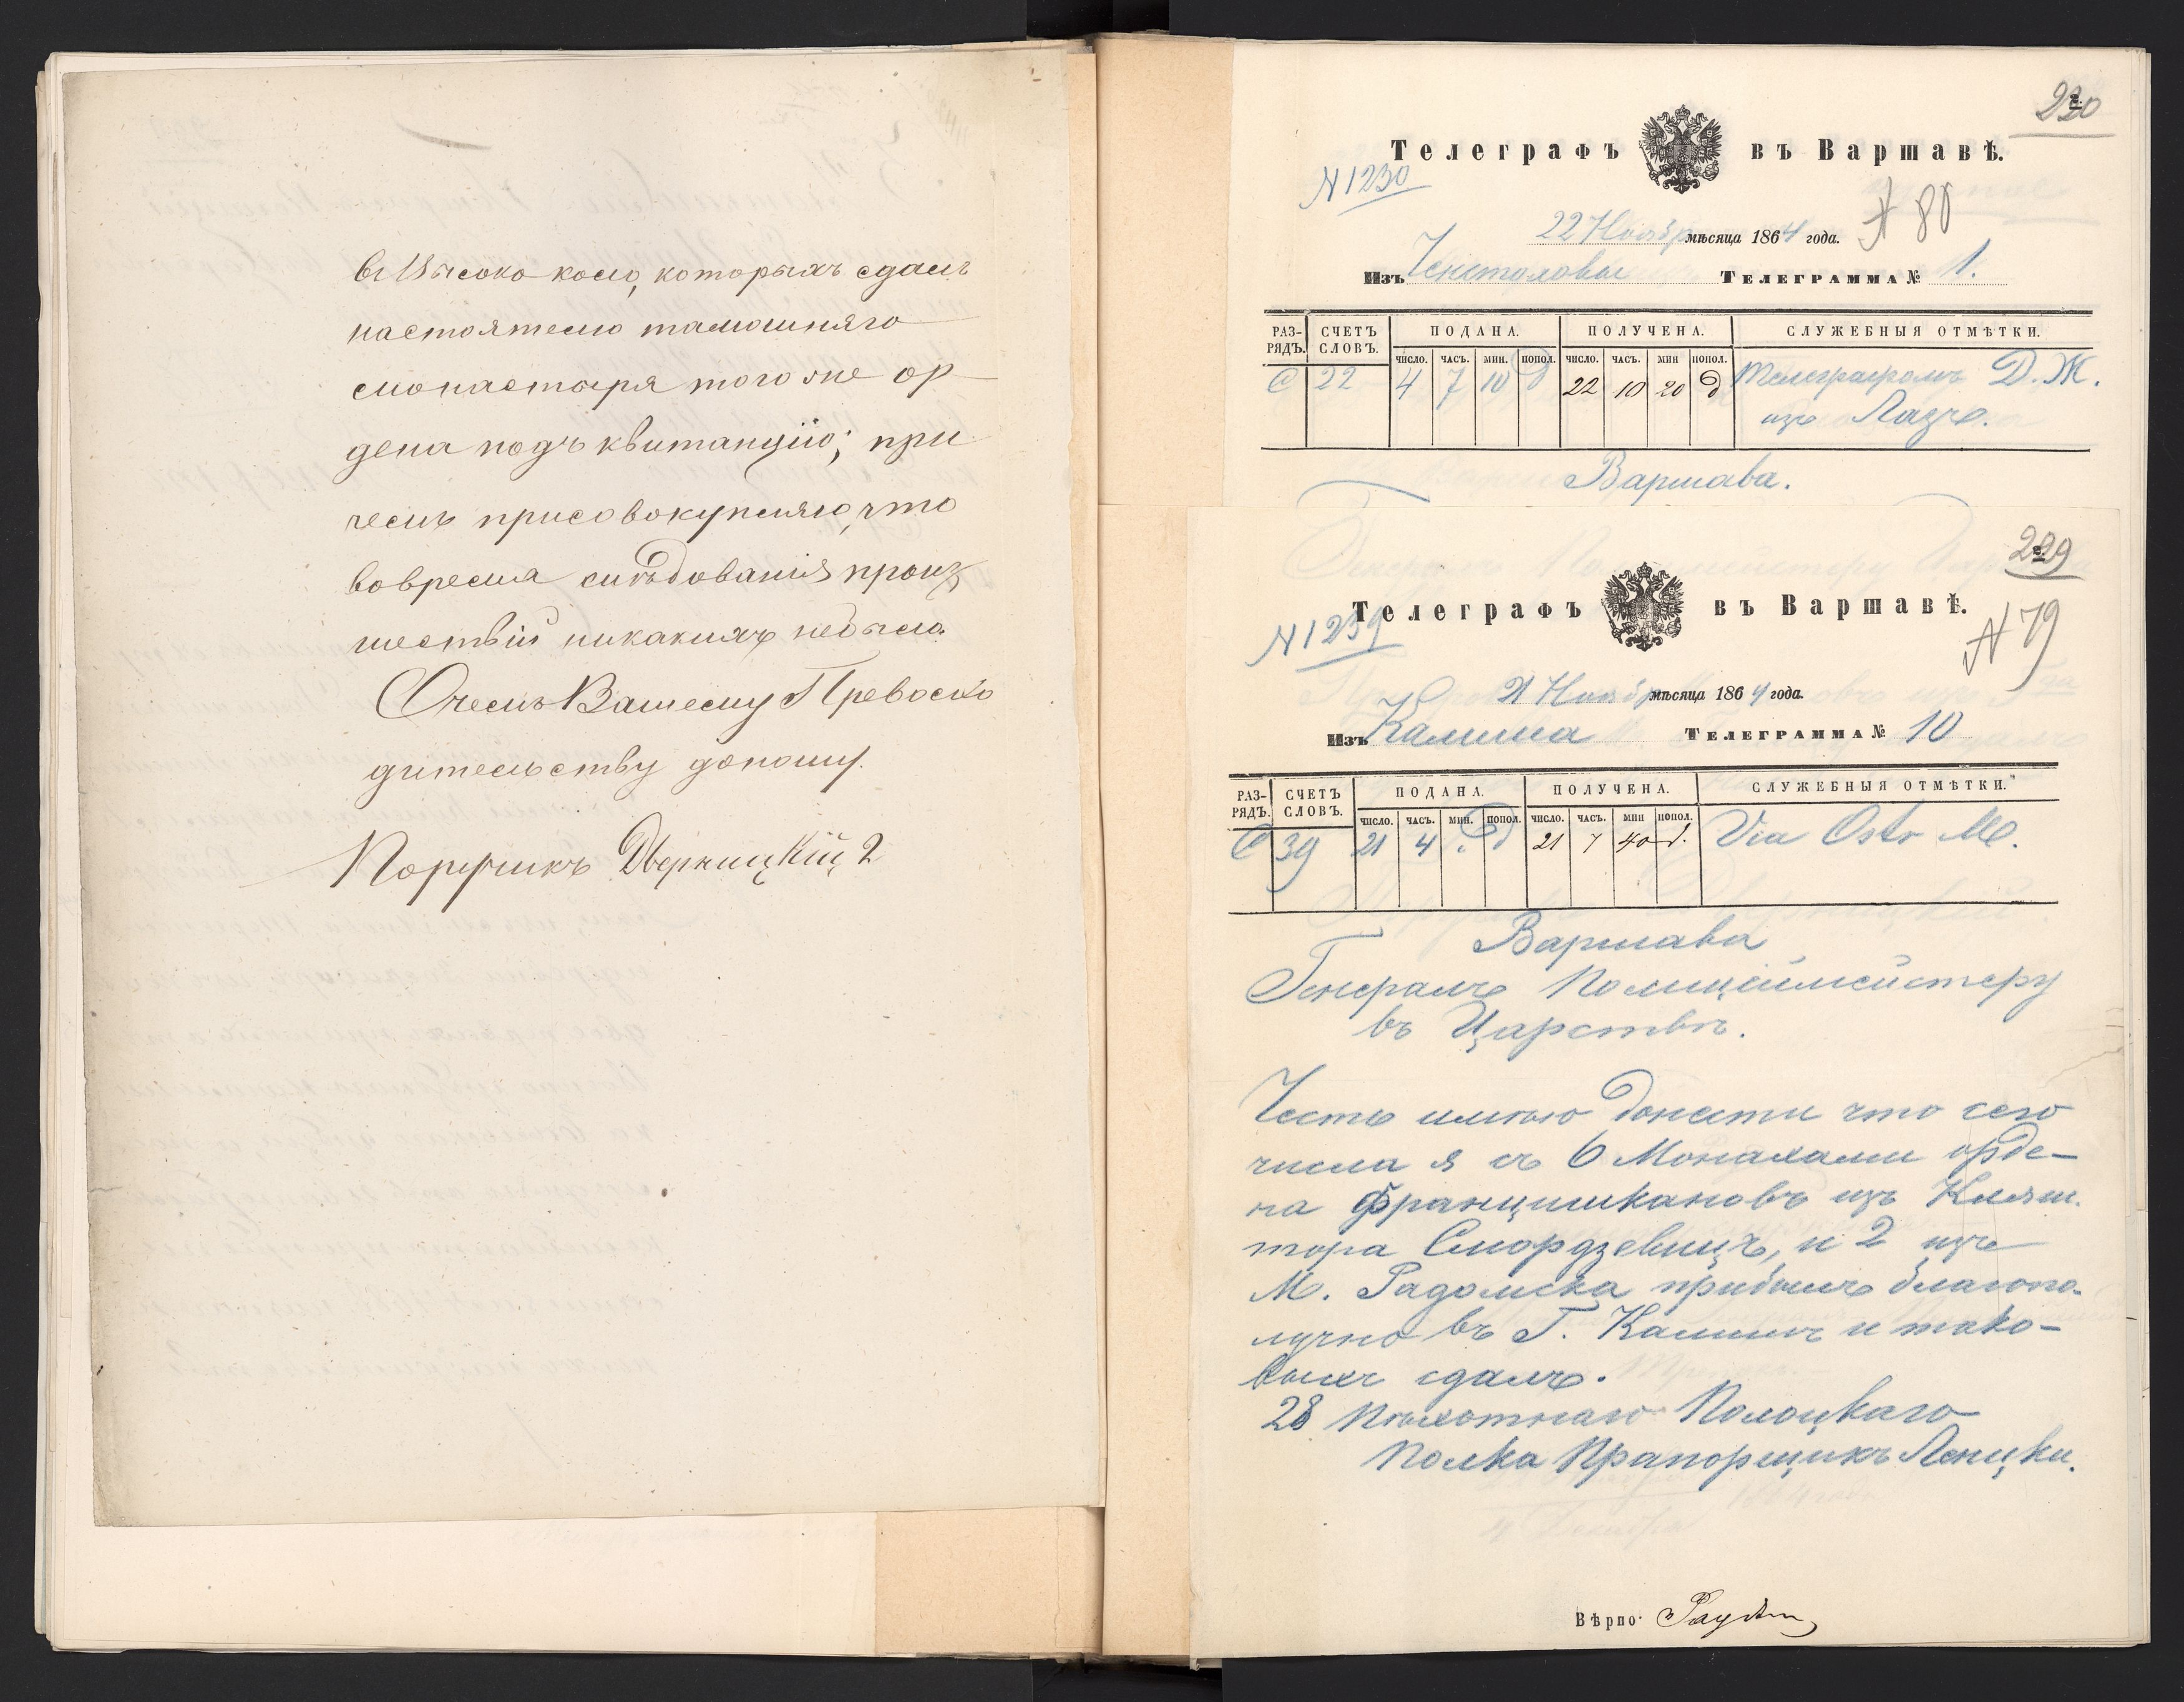 въ Высоко коло, которыхъ сдалъ
настоятелю тамошняго
монастыря того же ор-
дена подъ квитанцiю; при
чемъ присовокупляю, что
вовремя слѣдованiя произ
шествiй никакихъ небыло.
Очемъ Вашему Превосхо
дительству доношу.
Поручикъ Дверницкiй 2
230
Телеграфъ въ Варшавѣ.
N 1230
22 Ноября мѣсяца 1864 года.
N 80
Изъ Ченстоховы Телеграмма № 1.
РАЗ-РЯДЪ. СЧЕТЪ СЛОВЪ. ПОДАНА. ПОЛУЧЕНА. СЛУЖЕБНЫЯ ОТМѢТКИ.
ЧИСЛО. ЧАСЪ. МИН. ПОПОЛ. ЧИСЛО. ЧАСЪ. МИН ПОПОЛ.
С 22 4 7 10 д 22 10 20 д Телеграфомъ Д. Ж.
изъ Лазъ.
Варшава.
229
Телеграфъ въ Варшавѣ.
N 1239
N 79
21 Ноябр мѣсяца 1864 года.
Изъ Калиша Телеграмма № 10
РАЗ-РЯДЪ. СЧЕТЪ СЛОВЪ. ПОДАНА. ПОЛУЧЕНА. СЛУЖЕБНЫЯ ОТМѢТКИ.
ЧИСЛО. ЧАСЪ. МИН. ПОПОЛ. ЧИСЛО. ЧАСЪ. МИН ПОПОЛ.
С 39 21 4 21 7 40 д. Via Ostr М.
Варшава
Генералъ Полицеймейстеру
въ Царствѣ.
Честь имѣю донести что сего
числа я съ 6 Монахами орде-
на Францишкановъ изъ Кляш.
тора Смордзевицъ, и 2 изъ
М. Радомска прибылъ благопо-
лучно въ Г. Калишъ и тако-
выхъ сдалъ.
28 Пѣхотнаго Полоцкаго
Полка Прапорщикъ Леницки.
Вѣрно: